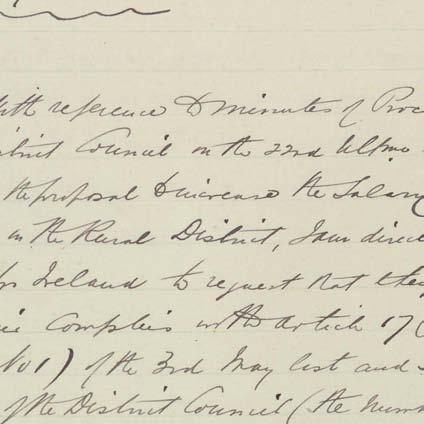 With reference to Minutes of Proc
istrict Council on the 22nd Ultmo
the proposal to increase the Salary
in the Rural District, I am direc
for Ireland to request that they
Complies with Article 17(
No 1) of the 3rd May last and
of the District Council (the num